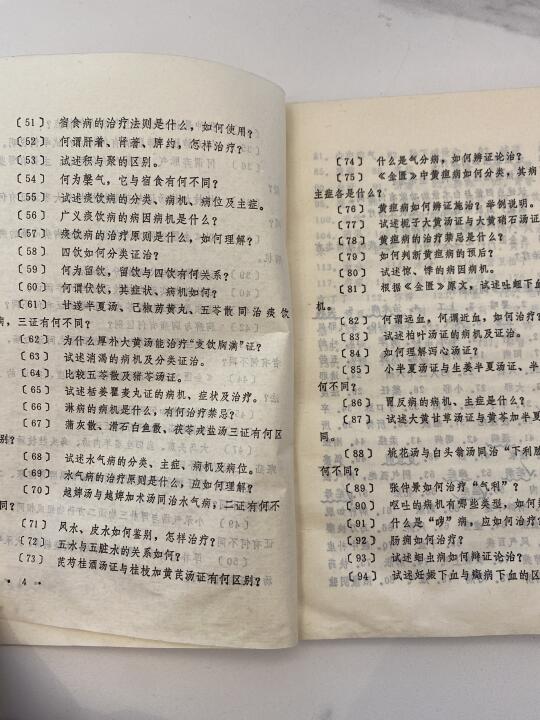 〔51〕 宿食病的治疗法则是什么，如何使用？
〔52〕 何谓肝着、肾著、脾约，怎样治疗？
〔53〕 试述积与聚的区别。
〔54〕 何为槩气，它与宿食有何不同？
〔55〕 试述痰饮病的分类、病机、病位及主症。
〔56〕 广义痰饮病的病因病机是什么？
〔57〕 痰饮病的治疗原则是什么，如何理解？
〔58〕 四饮如何分类证治？
〔59〕 何为留饮，留饮与四饮有何关系？
〔60〕 何谓伏饮，其症状、病机如何？
〔61〕 甘遂半夏汤、己椒苈黄丸、五苓散同治痰饮
病，三证有何不同？
〔62〕 为什么厚朴大黄汤能治疗“支饮胸满”证？
〔63〕 试述消渴的病机及分类证治。
〔64〕 比较五苓散及猪苓汤证。
〔65〕 试述栝蒌瞿麦丸证的病机、症状及治疗。
〔66〕 淋病的病机是什么，有何治疗禁忌？
〔67〕 蒲灰散、滑石白鱼散、茯苓戎盐汤三证有何区
别？
〔68〕 试述水气病的分类、主症、病机及病位。
〔69〕 水气病的治疗原则是什么，应如何理解？
〔70〕 越婢汤与越婢加术汤同治水气病，二证有何不
同？
〔71〕 风水、皮水如何鉴别，怎样治疗？
〔72〕 五水与五脏水的关系如何？
〔73〕 芪芍桂酒汤证与桂枝加黄芪汤证有何区别？
· 4 ·
〔74〕 什么是气分病，如何辨证论治？
〔75〕 《金匮》中黄疸病如何分类，其病
主症各是什么？
〔76〕 黄疸病如何辨证施治？举例说明。
〔77〕 试述栀子大黄汤证与大黄硝石汤证
〔78〕 黄疸病的治疗禁忌是什么？
〔79〕 如何判断黄疸病的预后？
〔80〕 试述惊、悸的病因病机。
〔81〕 根据《金匮》原文，试述吐衄下血
机。
〔82〕 何谓远血，何谓近血，如何治疗？
〔83〕 试述柏叶汤证的病机及证治。
〔84〕 如何理解泻心汤证？
〔85〕 小半夏汤证与生姜半夏汤证、半
何不同？
〔86〕 胃反病的病机、主症是什么？
〔87〕 试述大黄甘草汤证与黄芩加半夏
同。
〔88〕 桃花汤与白头翁汤同治“下利脓
何不同？
〔89〕 张仲景如何治疗“气利”？
〔90〕 呕吐的病机有哪些类型，如何
〔91〕 什么是“哕”病，应如何治疗？
〔92〕 肠痈如何治疗？
〔93〕 试述蛔虫病如何辨证论治？
〔94〕 试述妊娠下血与癥病下血的区